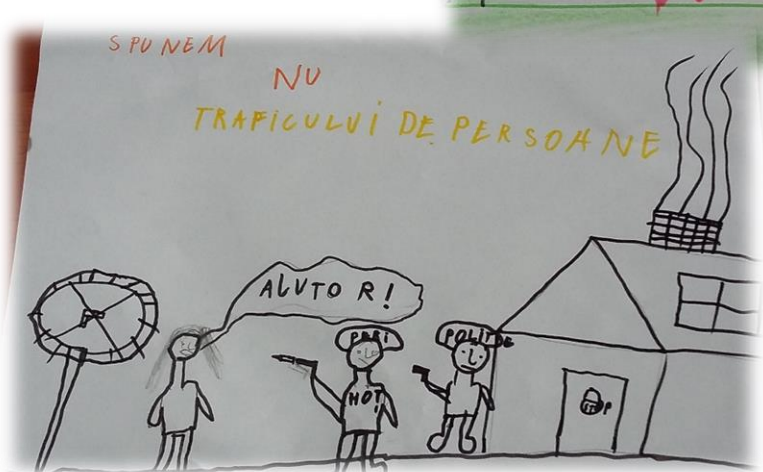 SPUNEM
NU
TRAFICULUI DE PERSOANE
AJUTOR!
POLIȚIE
HOȚ